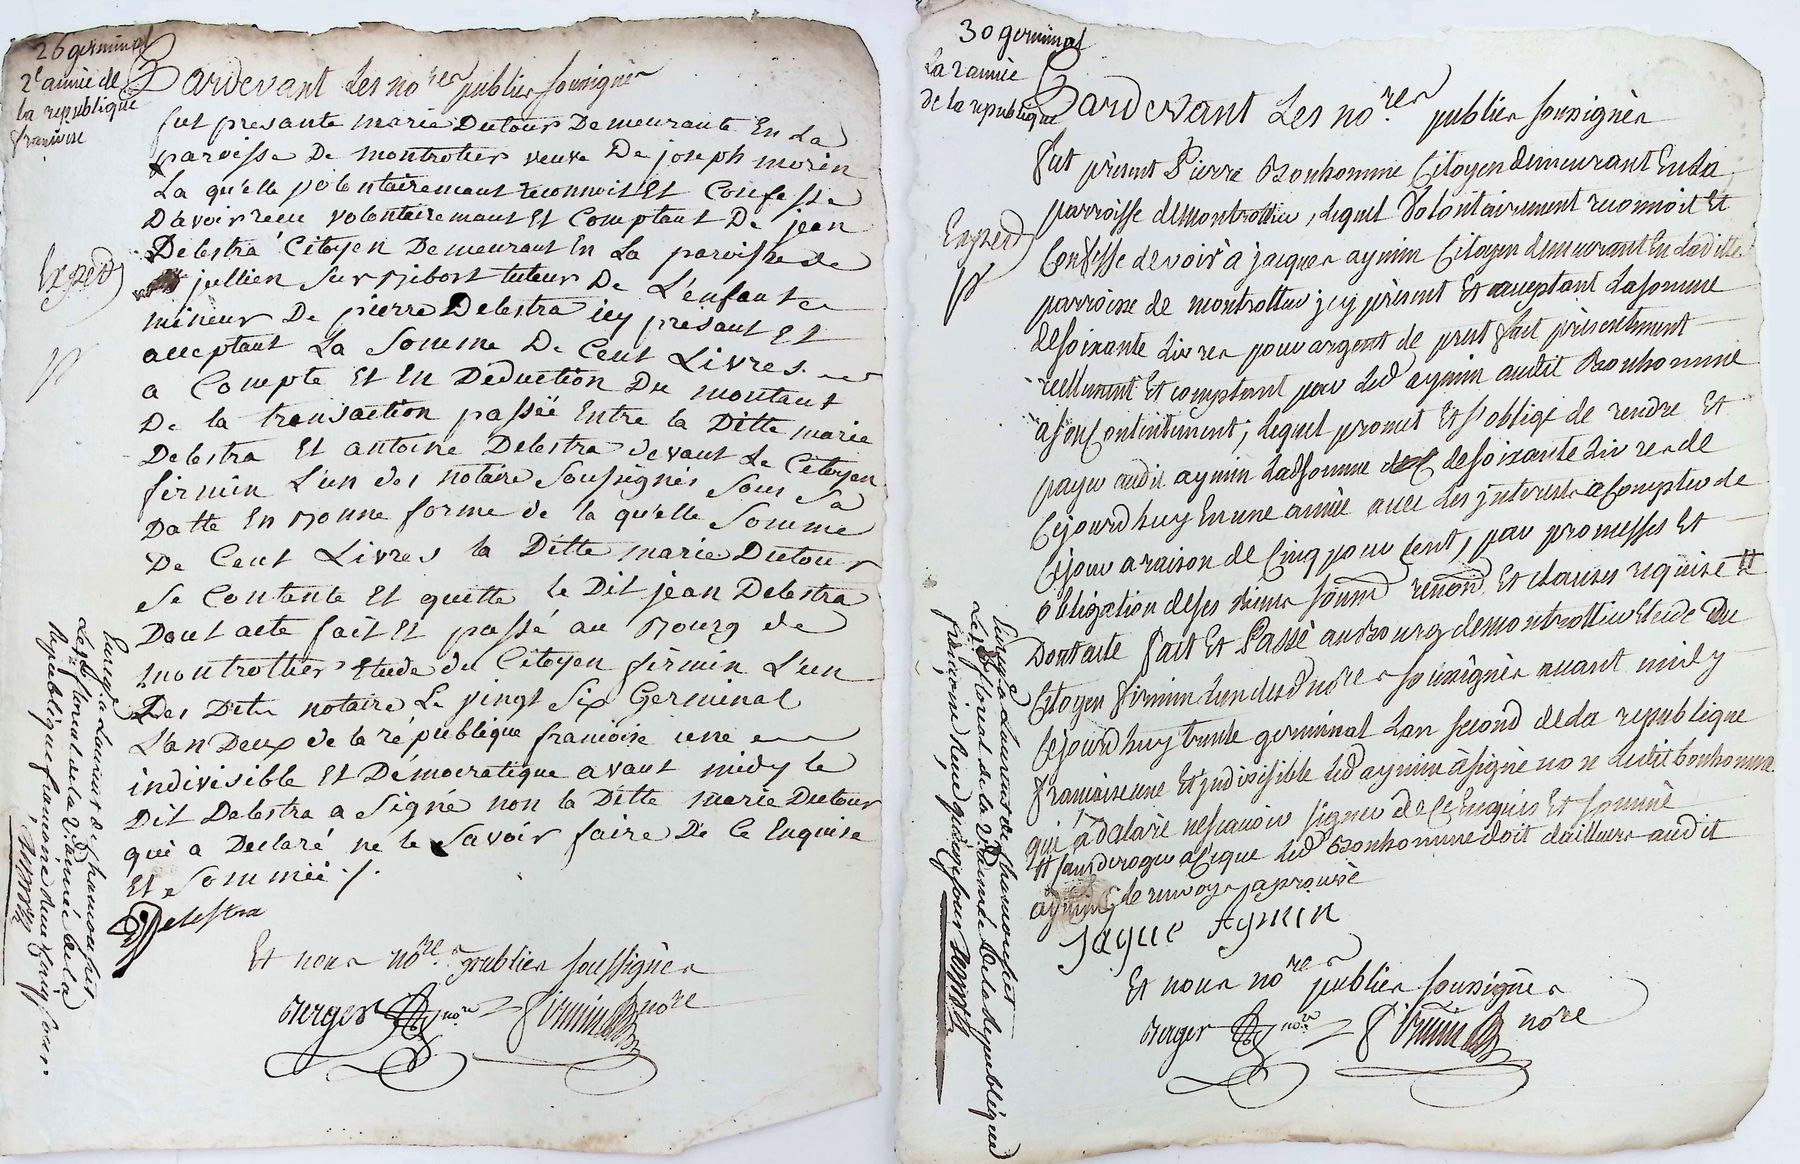 26 germinal
2e année de
la republique
francoise
Pardevant Les nores publics soussignès
fut presante marie Dutour Demeurante En La
paroisse De montrotier veuve De joseph morin
La qu'elle volontairemant reconnoit Et Confesse
D'avoir recu volontairemant Et Comptant De jean
Delestra Citoyen Demeurant En La paroisse de
jullien sur Bibost tuteur De L'enfant
mineur De pierre Delestra icy présant Et
acceptant La Somme De Cent Livres
a Compte Et En Déduction Du montant
De la transaction passëe Entre la Ditte marie
Delestra Et antoine Delestra devant Le Citoyen
firmin L'un des notaire Soussignés Sous Sa
Datte En Bonne forme de la qu'elle Somme
De Cent Livres la Ditte marie Dutour
Se Contente Et quitte le Dit jean Delestra
Dont acte fait Et passé au Bourg de
montrottier Etude du Citoyen firmin L'un
Des Dits notaire Le vingt Six Germinal
L'an Deux de la république francoise une
indivisible Et Démocratique avant midy le
Dit Delestra a Signé non la Ditte marie Dutour
qui a Declaré ne le Savoir faire De Ce Enquise
Et Sommée ./.
Delestra
Et nous nores publics soussignès
Berger nore Firmin nore
Expedié
Enregé a Laurent de chamousset
Le floreal de la 2e année de la
Republique francoise Reçu
30 germinal
La 2 année
de la republique
Pardevant Les nores publics soussignès
fut présent Pierre Bonhomme Citoyen demeurant En La
parroisse de montrottier, lequel Volontairement reconnoit Et
Confesse devoir à jacques aymin Citoyen demeurant En Laditte
parroisse de montrottier jcy présent Et acceptant La somme
de soixante Livres pour argent de prest fait présentement
reellement Et comptant par Led aymin audit Bonhomme
a son Contentement, lequel promet Et s'oblige de rendre Et
payer audit aymin Ladsomme de soixante Livres de
Cejourd'huy En une année avec Les jnterests a Compter de
Cejour a raison de Cinq pour Cent, par promesses Et
obligation de ses biens soumd renond Et clauses requise Et
Dont acte fait Et Passé au Bourg de montrottier Etude Du
Citoyen firmin L'un desd nores soussignès avant midy
Cejourd'huy trente germinal L'an second de La republique
francaise une Et jndivisible Led aymin à signé non Ledit bonhomme
qui à déclaré ne scavoir signer de Ce Enquis Et sommé
Et sans deroger a Ce que Led Bonhomme doit d'ailleurs audit
aymin, le renvoy approuvé
Jaque Aymin
Et nous nores publics soussignès
Berger nore Firmin nore
Expedié
Enregé a Laurent de chamousset
Le floreal de la 2e année de la Republique
francoise Reçu